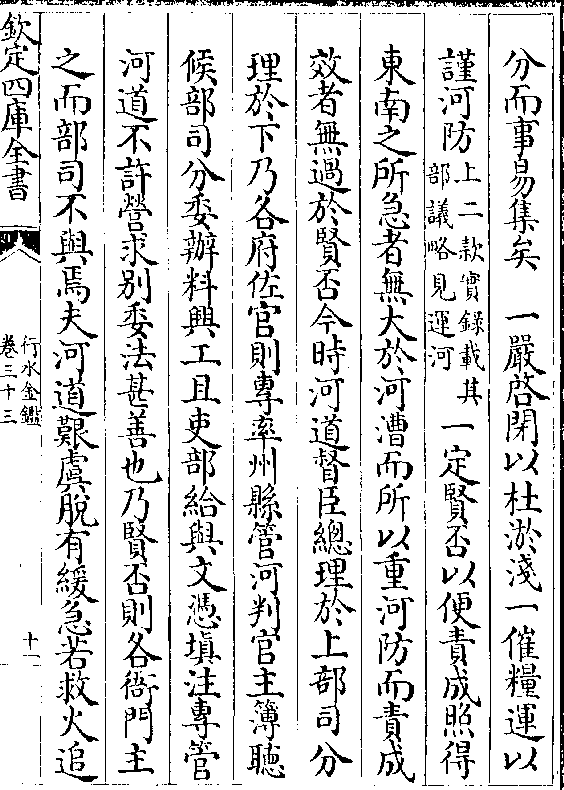 分而事易集矣　一嚴啓閉以杜淤淺一催糧運以
謹河防上二款實錄載其部議略見運河　一定賢否以便責成照得
東南之所急者無大於河漕而所以重河防而責成
效者無過於賢否今時河道督臣總理於上部司分
理於下乃各府佐官則專率州縣管河判官主簿聽
候部司分委辦料興工且吏部給與文憑填注專管
河道不許營求別委法甚善也乃賢否則各衙門主
之而部司不與焉夫河道艱虞脫有緩急若救火追
欽定四庫全書
行水金鑑
卷三十三
十一